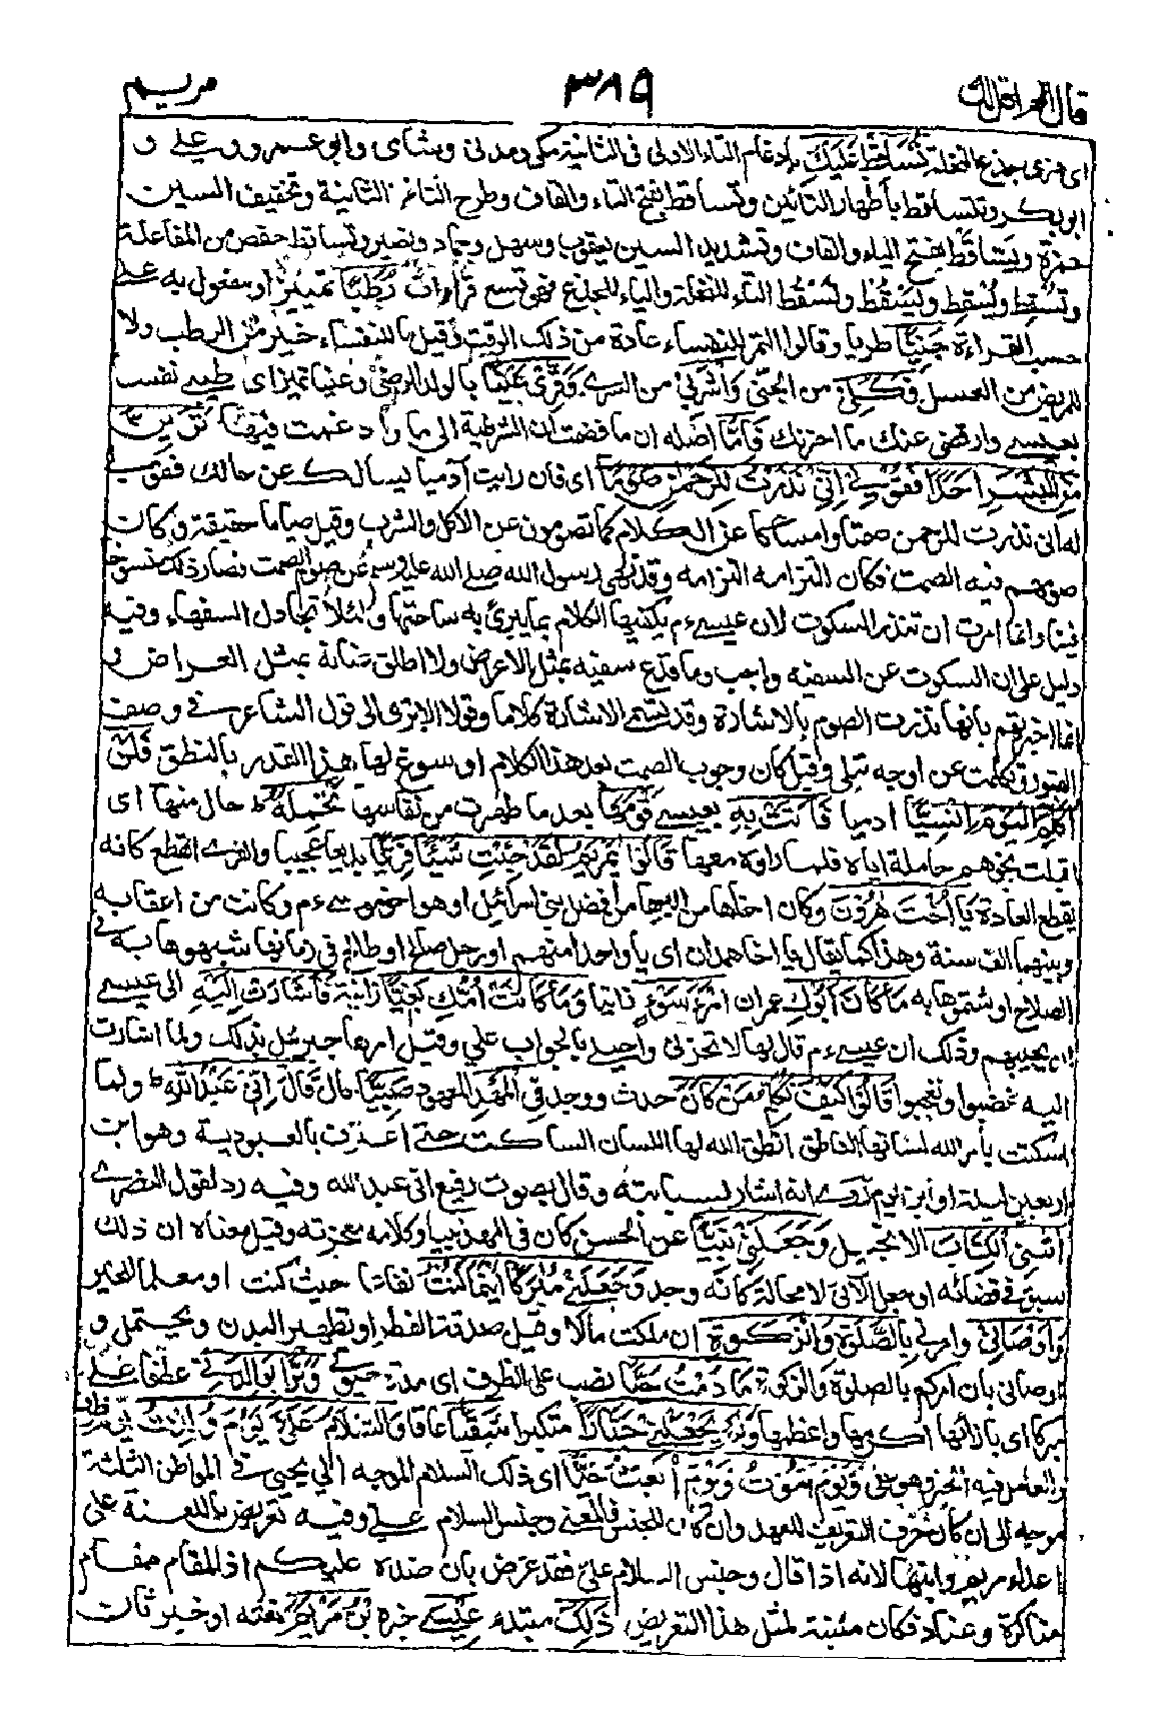 قال الم اقل لك
٣٨٩
مريم
اى هزى بجذع النخلة تُسَاقِطْ عَلَيْكِ بإدغام التاء الاولى فى الثانية مكى ومدنى وشامى وابو عمرو وعلى و
ابو بكر وتتساقط بأظهار التائين وتساقط بفتح التاء والقاف وطرح التاء الثانية وتخفيف السين
حمزة ويَسَّاقَطْ بفتح الياء والقاف وتشديد السين يعقوب وسهل وحماد ونصير وتساقط حفص من المفاعلة
وتُسْقِط ويُسْقِط وتَسْقُط ويَسْقُط التاء للنخلة والياء للجذع فهو تسع قراءات رُطَبًا تمييز او مفعول به على
حسب القراءة جَنِيًّا طريا وقالوا التمر للنفساء عادة من ذلك الوقت وقيل ما للنفساء خير من الرطب ولا
للمريض من العسل فَكُلِي من الجنى وَاشْرَبِي من السرى وَقَرِّي عَيْنًا بالولد الرضى وعينا تميز اى طيبى نفسا
بعيسى وارفضى عنك ما احزنك فَإِمَّا اصله ان ما فضمت ان الشرطية الى ما وادغمت فيها تَرَيِنَّ
مِنَ الْبَشَرِ أَحَدًا فَقُولِي إِنِّي نَذَرْتُ لِلرَّحْمٰنِ صَوْمًا اى فان رايت آدميا يسالك عن حالك فقولى
له انى نذرت للرحمن صمتا وامساكا عن الكلام كما تصومون عن الاكل والشرب وقيل صياما حقيقة وكان
صومهم فيه الصمت فكان التزامه التزامه وقد نهى رسول الله صلى الله عليه وسلم عن صوم الصمت فصار ذلك منسوخا
فينا وانما امرت ان تنذر السكوت لان عيسى ءم يكفيها الكلام بما يبرئ به ساحتها ولئلا تجادل السفهاء وفيه
دليل على ان السكوت عن السفيه واجب وما قدع سفيه بمثل الاعراض ولا اطلق عنانه بمثل العراض و
انما اخبرتهم بانها نذرت الصوم بالاشارة وقد تسمى الاشارة كلاما وقولا الا ترى الى قول الشاعر فى وصف
القبور وتكلمت عن اوجه تبلى وقيل كان وجوب الصمت بعد هذا الكلام او سوغ لها هذا القدر بالنطق فَلَنْ
أُكَلِّمَ الْيَوْمَ إِنْسِيًّا ادميا فَأَتَتْ بِهِ بعيسى قَوْمَهَا بعد ما طهرت من نفاسها تَحْمِلُهُ ط حال منها اى
اقبلت نحوهم حاملة اياه فلما راوه معها قَالُوا يٰمَرْيَمُ لَقَدْ جِئْتِ شَيْئًا فَرِيًّا بديعا عجيبا والفرى القطع كانه
يقطع العادة يٰأُخْتَ هٰرُونَ وكان اخاها من ابيها من افضل بنى اسرائيل او هو اخو موسى ءم وكانت من اعقابه
وبينهما الف سنة وهذا كما يقال يا اخا همدان اى يا واحدا منهم او رجل صالح او طالح فى زمانها شبهوها به فى
الصلاح او شتموها به مَا كَانَ أَبُوكِ عمران امْرَأَ سَوْءٍ زانيا وَمَا كَانَتْ أُمُّكِ بَغِيًّا زانية فَأَشَارَتْ إِلَيْهِ الى عيسى
ان يجيبهم وذلك ان عيسى ءم قال لها لا تحزنى واحيلى بالجواب علي وقيل امرها جبرئيل بذلك ولما اشارت
اليه غضبوا وتعجبوا قَالُوا كَيْفَ نُكَلِّمُ مَنْ كَانَ حدث ووجد فِي الْمَهْدِ المعهود صَبِيًّا حال قَالَ إِنِّي عَبْدُ اللّٰهِ ط ولما
اسكتت بأمر الله لسانها الناطق انطق الله لها اللسان الساكت حتى اعترف بالعبودية وهو ابن
اربعين ليلة او ابن يوم روى انه اشار بسبابته وقال بصوت رفيع انى عبد الله وفيه رد لقول النصارى
اٰتٰنِيَ الْكِتَابَ الانجيل وَجَعَلَنِي نَبِيًّا عن الحسن كان فى المهد نبيا وكلامه معجزته وقيل معناه ان ذلك
سبق فى قضائه او جعل الآتى لا محالة كانه وجد وَجَعَلَنِي مُبٰرَكًا أَيْنَمَا كُنْتُ نفاعا حيث كنت او معلما للخير
وَأَوْصَانِي وامرنى بِالصَّلٰوةِ وَالزَّكٰوةِ ان ملكت مالا وقيل صدقة الفطر او تطهير البدن ويحتمل و
اوصانى بان امركم بالصلوة والزكوة مَا دُمْتُ حَيًّا نصب على الظرف اى مدة حيوتى وَبَرًّا بِوَالِدَتِي عطفا على
مبركا اى بارا بها اكرمها واعظمها وَلَمْ يَجْعَلْنِي جَبَّارًا متكبرا شَقِيًّا عاقا وَالسَّلٰمُ عَلَيَّ يَوْمَ وُلِدْتُ يوم ظرف
والعامل فيه الخبر وهو على وَيَوْمَ أَمُوتُ وَيَوْمَ أُبْعَثُ حَيًّا اى ذلك السلام الموجه الى يحيى فى المواطن الثلثة
موجه الى ان كان حرف التعريف للعهد وان كان للجنس فالمعنى وجنس السلام على وفيه تعريض باللعنة على
اعداء مريم وابنها لانه اذا قال وجنس السلام على فقد عرض بان ضده عليكم اذ المقام مقام
مناكرة وعناد فكان مئنة لمثل هذا التعريض ذٰلِكَ مبتداء عِيسَى خبره ابْنُ مَرْيَمَ نعته او خبر ثان